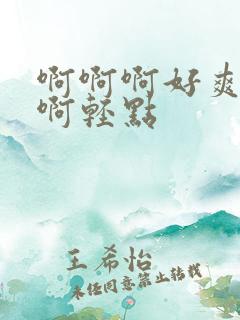 啊啊啊好爽
啊輕點
王希怡
未经同意禁止转载